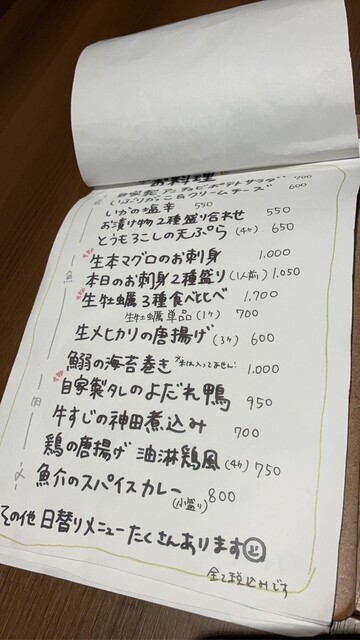 お料理
自家製アンチョビポテトサラダ 700
いぶりがっこ&クリームチーズ 600
いかの塩辛 550
お漬け物2種盛り合わせ 550
とうもろこしの天ぷら (4ヶ) 650
魚
生本マグロのお刺身 1.000
本日のお刺身2種盛り (1人前) 1.050
生牡蠣3種食べ比べ 1.700
生牡蠣単品 (1ヶ) 700
生メヒカリの唐揚げ (3ヶ) 600
鰯の海苔巻き ※米は入ってません! 1.000
肉
自家製タレのよだれ鴨 950
牛すじの神田煮込み 700
鶏の唐揚げ 油淋鶏風 (4ヶ) 750
〆
魚介のスパイスカレー (小盛り) 800
その他 日替りメニューたくさんあります
全て税込みです